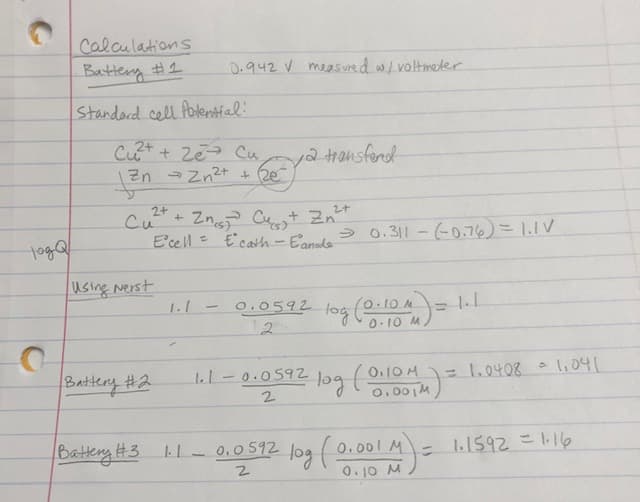 Calculations
Battery #1 0.942 V measured w/ voltmeter
Standard cell Potential:
Cu²⁺ + 2e⁻ → Cu
Zn → Zn²⁺ + 2e⁻ 2 transferd
Cu²⁺ + Zn(s) → Cu(s) + Zn²⁺
E°cell = E°cath - E°anode ⇒ 0.311 - (-0.76) = 1.1V
log Q
Using Nerst
1.1 - 0.0592/2 log(0.10 M/0.10 M) = 1.1
Battery #2 1.1 - 0.0592/2 log(0.10 M/0.001 M) = 1.0408 = 1.041
Battery #3 1.1 - 0.0592/2 log(0.001 M/0.10 M) = 1.1592 = 1.16